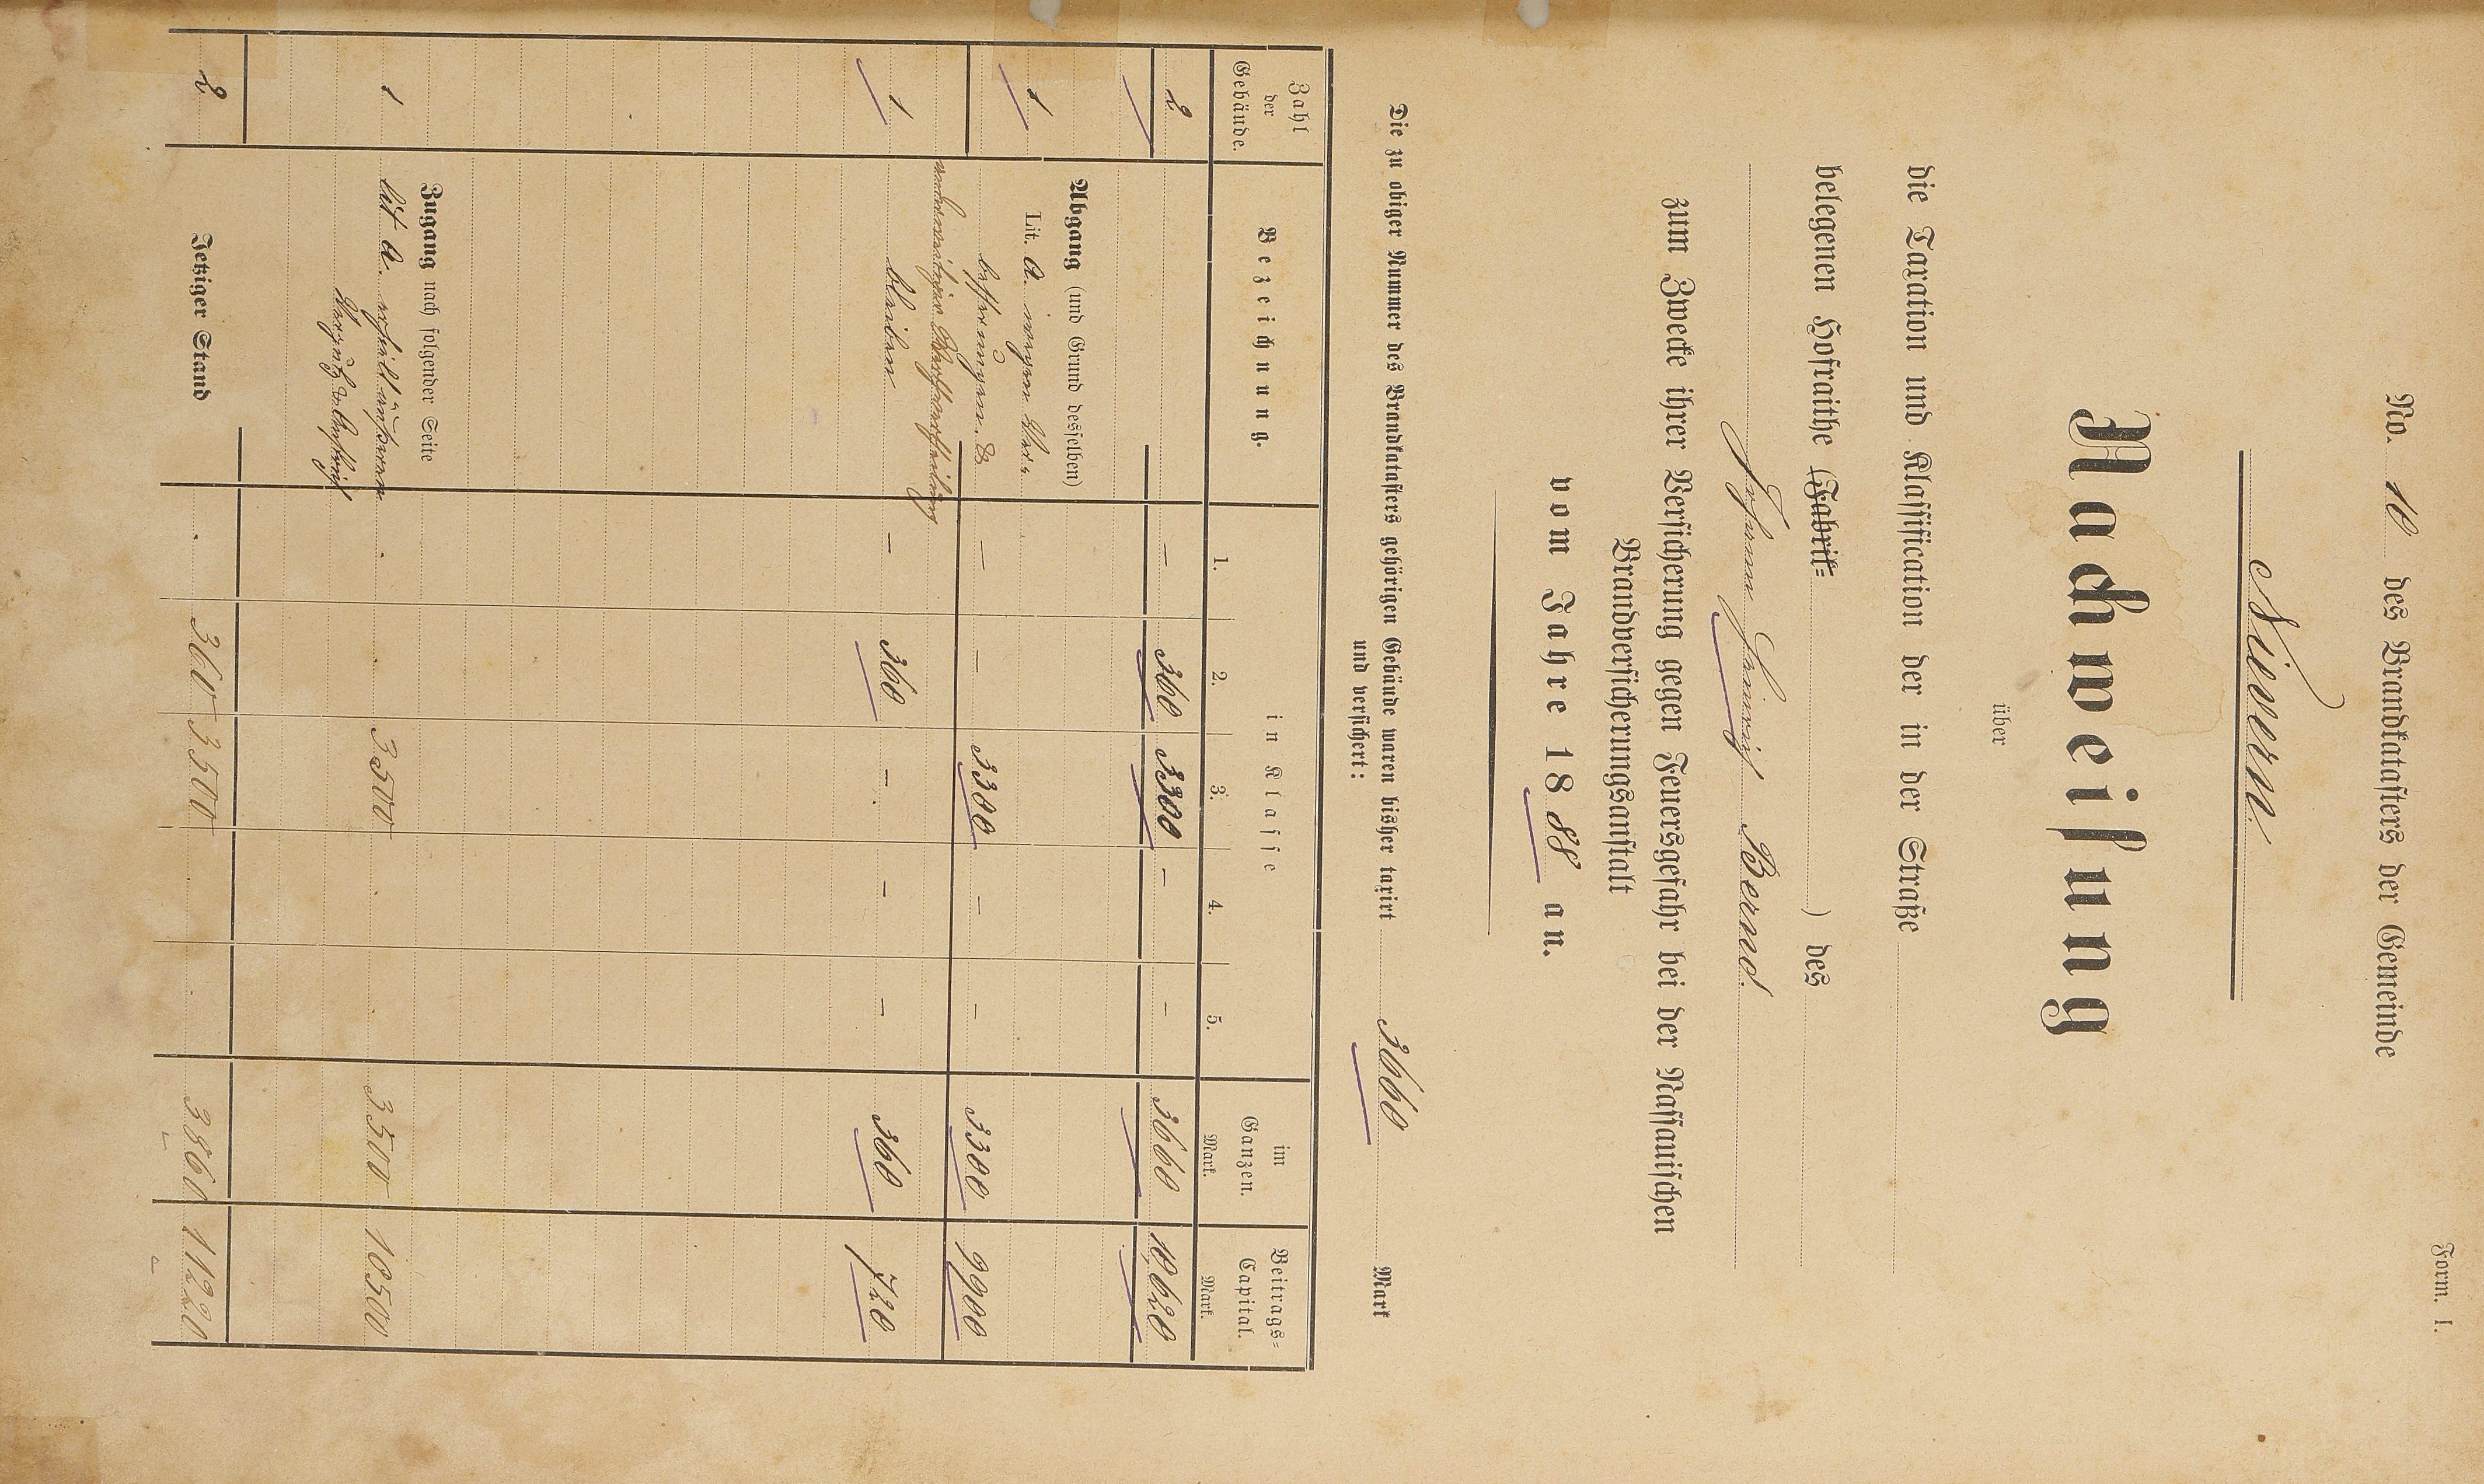 Form. I.
No. 10 des Brandkatasters der Gemeinde
Nivern.
Nachweisung
über
die Taxation und Klassification der in der Straße
belegenen Hofraithe (Fabrik= ) des
Johann Bernd.
zum Zwecke ihrer Versicherung gegen Feuersgefahr bei der Nassauischen
Brandversicherungsanstalt
vom Jahre 1888 an.
Die zu obiger Nummer des Brandkatasters gehörigen Gebäude waren bisher taxirt 3660 Mark
und versichert:
Zahl der Gebäude. Bezeichnung. in Klasse im Ganzen. Beitrags= Capital.
1. 2. 3. 4. 5. Mark. Mark.
2 – 360 3300 – – 3660 10,620
Abgang (und Grund desselben)
1 Lit. a. wegen Ver=
besserungen & – – 3300 – – 3300 9900
anderweitiger Werthertheilung
1 bleiben – 360 – – – 360 720
Zugang nach folgender Seite
1 Lit a. erhielt äußeren 3500 3500 10500
Verputz &
2 Jetziger Stand 360 3500 3860 11220